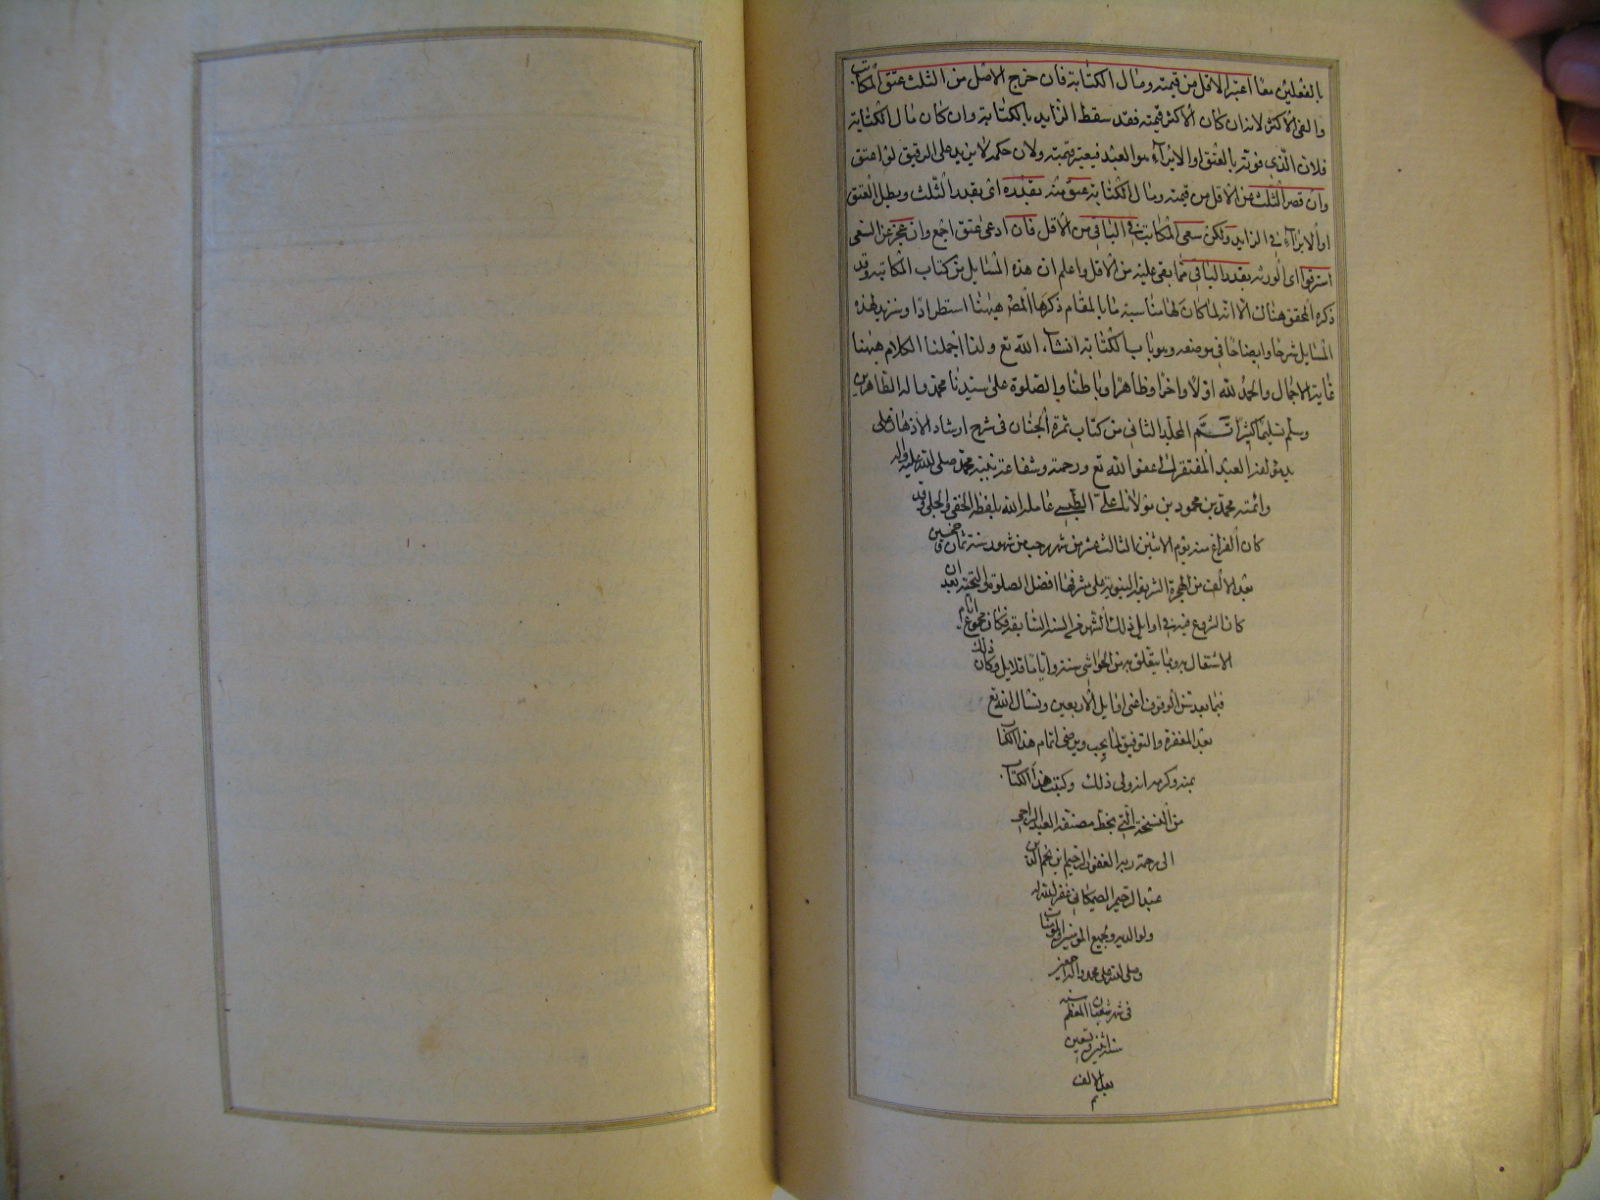 بالفعلين معا اعتبر الاقل من قيمته ومال الكتابة فان خرج الاقل من الثلث عتق المكاتب
والغى الاكثر لانه ان كان الاكثر قيمته فقد سقط الزايد بالكتابة وان كان مال الكتابة
فلان الذي فوته بالعتق او الابراء هو العبد فيعتبر قيمته ولان حكمه لا يزيد على الرقيق لو اعتق
وان قصر الثلث عن الاقل من قيمته ومال الكتابة عتق منه بقدره اى بقدر الثلث وبطل العتق
او الابراء في الزايد ولكن سعى المكاتب في الباقي من الاقل فان ادعى عتق اجمع وان عجز عن السعى
استرقوا اى الورثه بقدر الباقي مما بقى عليه من الاقل واعلم ان هذه المسايل من كتاب المكاتبة وقد
ذكره المحقق هناك الا انه لما كان لها مناسبة ما بالمقام ذكرها المص هيهنا استطرادا وسنزيد لهذه
المسايل شرحا وايضاحا في موضعه وهو باب الكتابة انشاء الله تع ولذا اجملنا الكلام هيهنا
غاية الاجمال والحمد لله اولا واخرا وظاهرا وباطنا والصلوة على سيدنا محمد واله الطاهرين
وسلم تسليما كثيرا تم المجلد الثاني من كتاب ثمرة الجنان في شرح ارشاد الاذهان على
يد مولفه العبد المفتقر الى عفو الله تع ورحمته وشفاعة نبيه محمد صلى الله عليه واله
وائمته محمد بن محمود بن مولانا على الطبسي عامله الله بلطفه الخفى والجلى وقد
كان الفراغ منه يوم الاثنين الثالث عشر من شهر رجب من شهور سنة ثمان وخمسين
بعد الالف من الهجرة الشريفة النبوية على مشرفها افضل الصلوة والتحية بعد ان
كان الشروع فيه في اوايل ذلك الشهر من السنة السابقة فكان مجموع ايام
الاشتغال به وبما يتعلق به من الحواشى سنة واياما قلايل وكان ذلك
فيما بعد سن الوقوف اعنى اوايل الاربعين ونسال الله تع
بعد المغفرة والتوفيق لما يحب ويرضى اتمام هذا الكتاب
بمنه وكرمه انه ولى ذلك وكتبت هذا الكتاب
من النسخة التي بخط مصنفه العبد الراجى
الى رحمة ربه الغفور الرحيم ابن نجم الدين
عبد الرحيم غفر الله له
ولوالديه ولجميع المومنين والمومنات
وصلى الله على محمد واله اجمعين
في شهر شعبان المعظم سنه
سنة اثنين وتسعين
بعد الالف
م